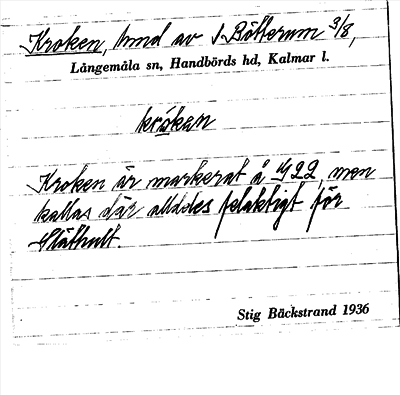 Kroken, hmd av S. Bötterum 3/8,
Långemåla sn, Handbörds hd, Kalmar l.
krókan
Kroken är markerat å 22, men
kallas där alldeles felaktigt för
Släthult.
Stig Bäckstrand 1936